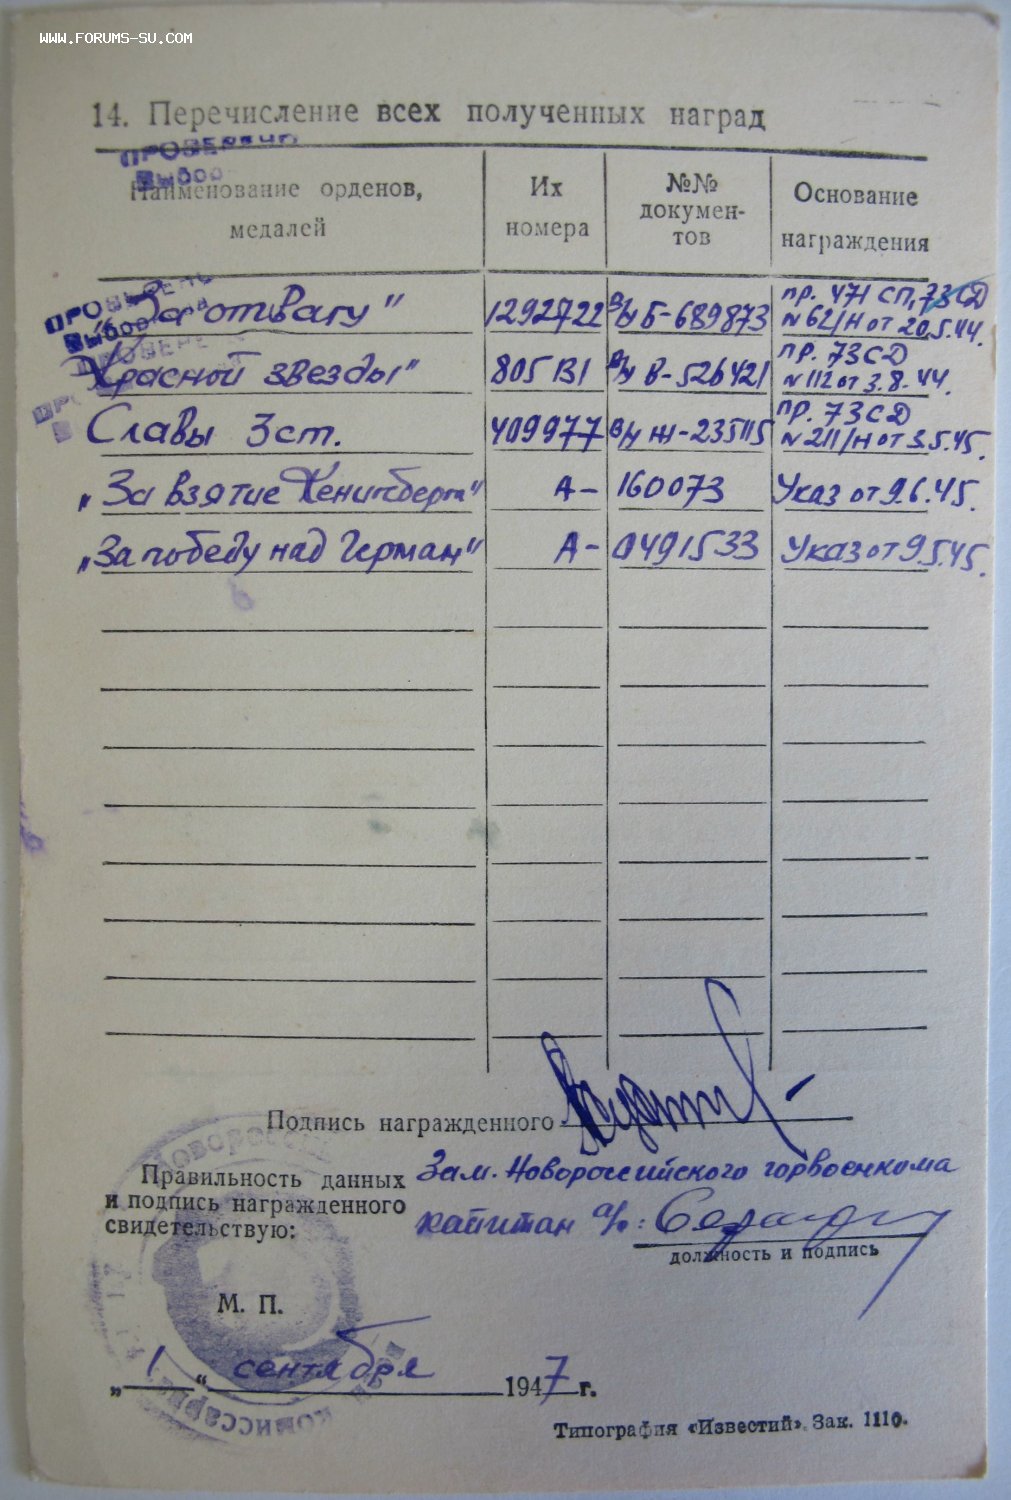 www.FORUMS-SU.COM
14. Перечисление всех полученных наград
ПРОВЕРЕНО
Наименование орденов, медалей
Их номера
№№ докумен-тов
Основание награждения
ПРОВЕРЕНО
„За отвагу" 1292722 в/к Б-689873 пр. 471 СП, 73 СД № 62/н от 20.5.44.
Красной звезды" 805131 в/к В-526421 пр. 73 СД № 112 от 3.8.44.
Славы 3 ст. 409977 в/к Ж-235115 пр. 73 СД № 211/н от 3.5.45.
„За взятие Кенигсберга" А- 160073 Указ от 9.6.45.
„За победу над Герман" А- 0491533 Указ от 9.5.45.
Подпись награжденного
Правильность данных
и подпись награжденного
свидетельствую:
Зам. Новороссийского горвоенкома
капитан а/с:
должность и подпись
М. П.
„1" сентября 1947 г.
Типография «Известий». Зак. 1110.